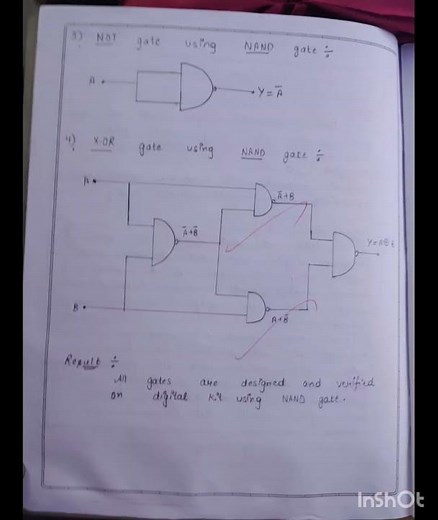 3) NOT gate using NAND gate ÷
A
Y = A̅
4) X-OR gate using NAND gate ÷
A
A̅+B
A̅+B̅
B
A+B̅
Result ÷
All gates are designed and verified
on digital kit using NAND gate.
InShOt